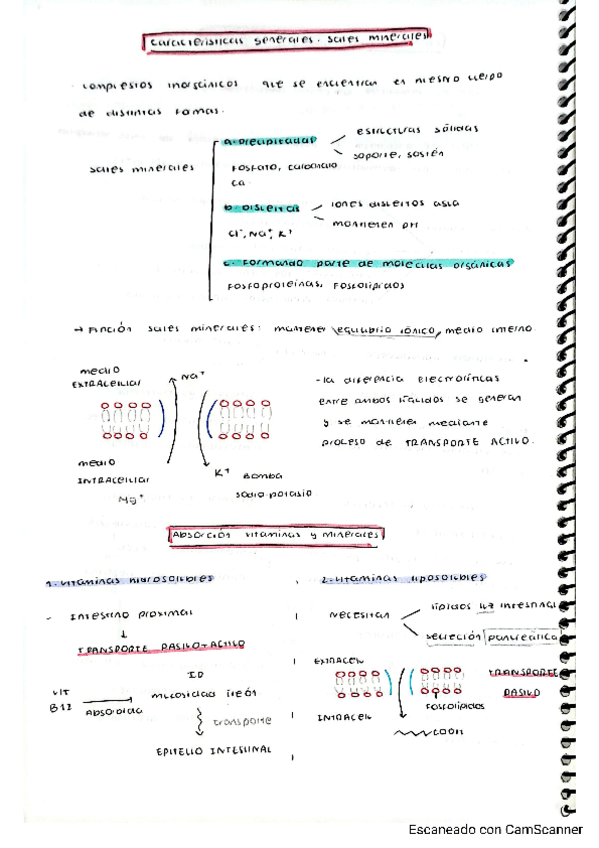 características generales. sales minerales
- compuestos inorgánicos que se encuentran en nuestro cuerpo
de distintas formas.
sales minerales
a. precipitadas
estructuras sólidas
soporte, sostén
fosfato, carbonato
Ca
b. disueltas
iones disueltos agua
mantienen pH
Cl⁻, Na⁺, K⁺
c. Formando parte de moléculas orgánicas
fosfoproteínas, fosfolípidos
→ Función sales minerales: mantener equilibrio iónico, medio interno.
medio
EXTRACELULAR
Na⁺
- la diferencia electrolíticas
entre ambos líquidos se generan
y se mantienen mediante
proceso de TRANSPORTE ACTIVO.
medio
INTRACELULAR
Mg⁺
K⁺ Bomba
sodio-potasio
Absorción vitaminas y minerales
1- vitaminas hidrosolubles
- Intestino proximal
↓
TRANSPORTE PASIVO + ACTIVO
VIT
B12
Absorbida
ID
mucosidad íleon
transporte
EPITELIO INTESTINAL
2- vitaminas liposolubles
necesitan
lípidos luz intestinal
secreción pancreática
EXTRACEL
TRANSPORTE
PASIVO
fosfolípidos
INTRACEL
COOH
Escaneado con CamScanner